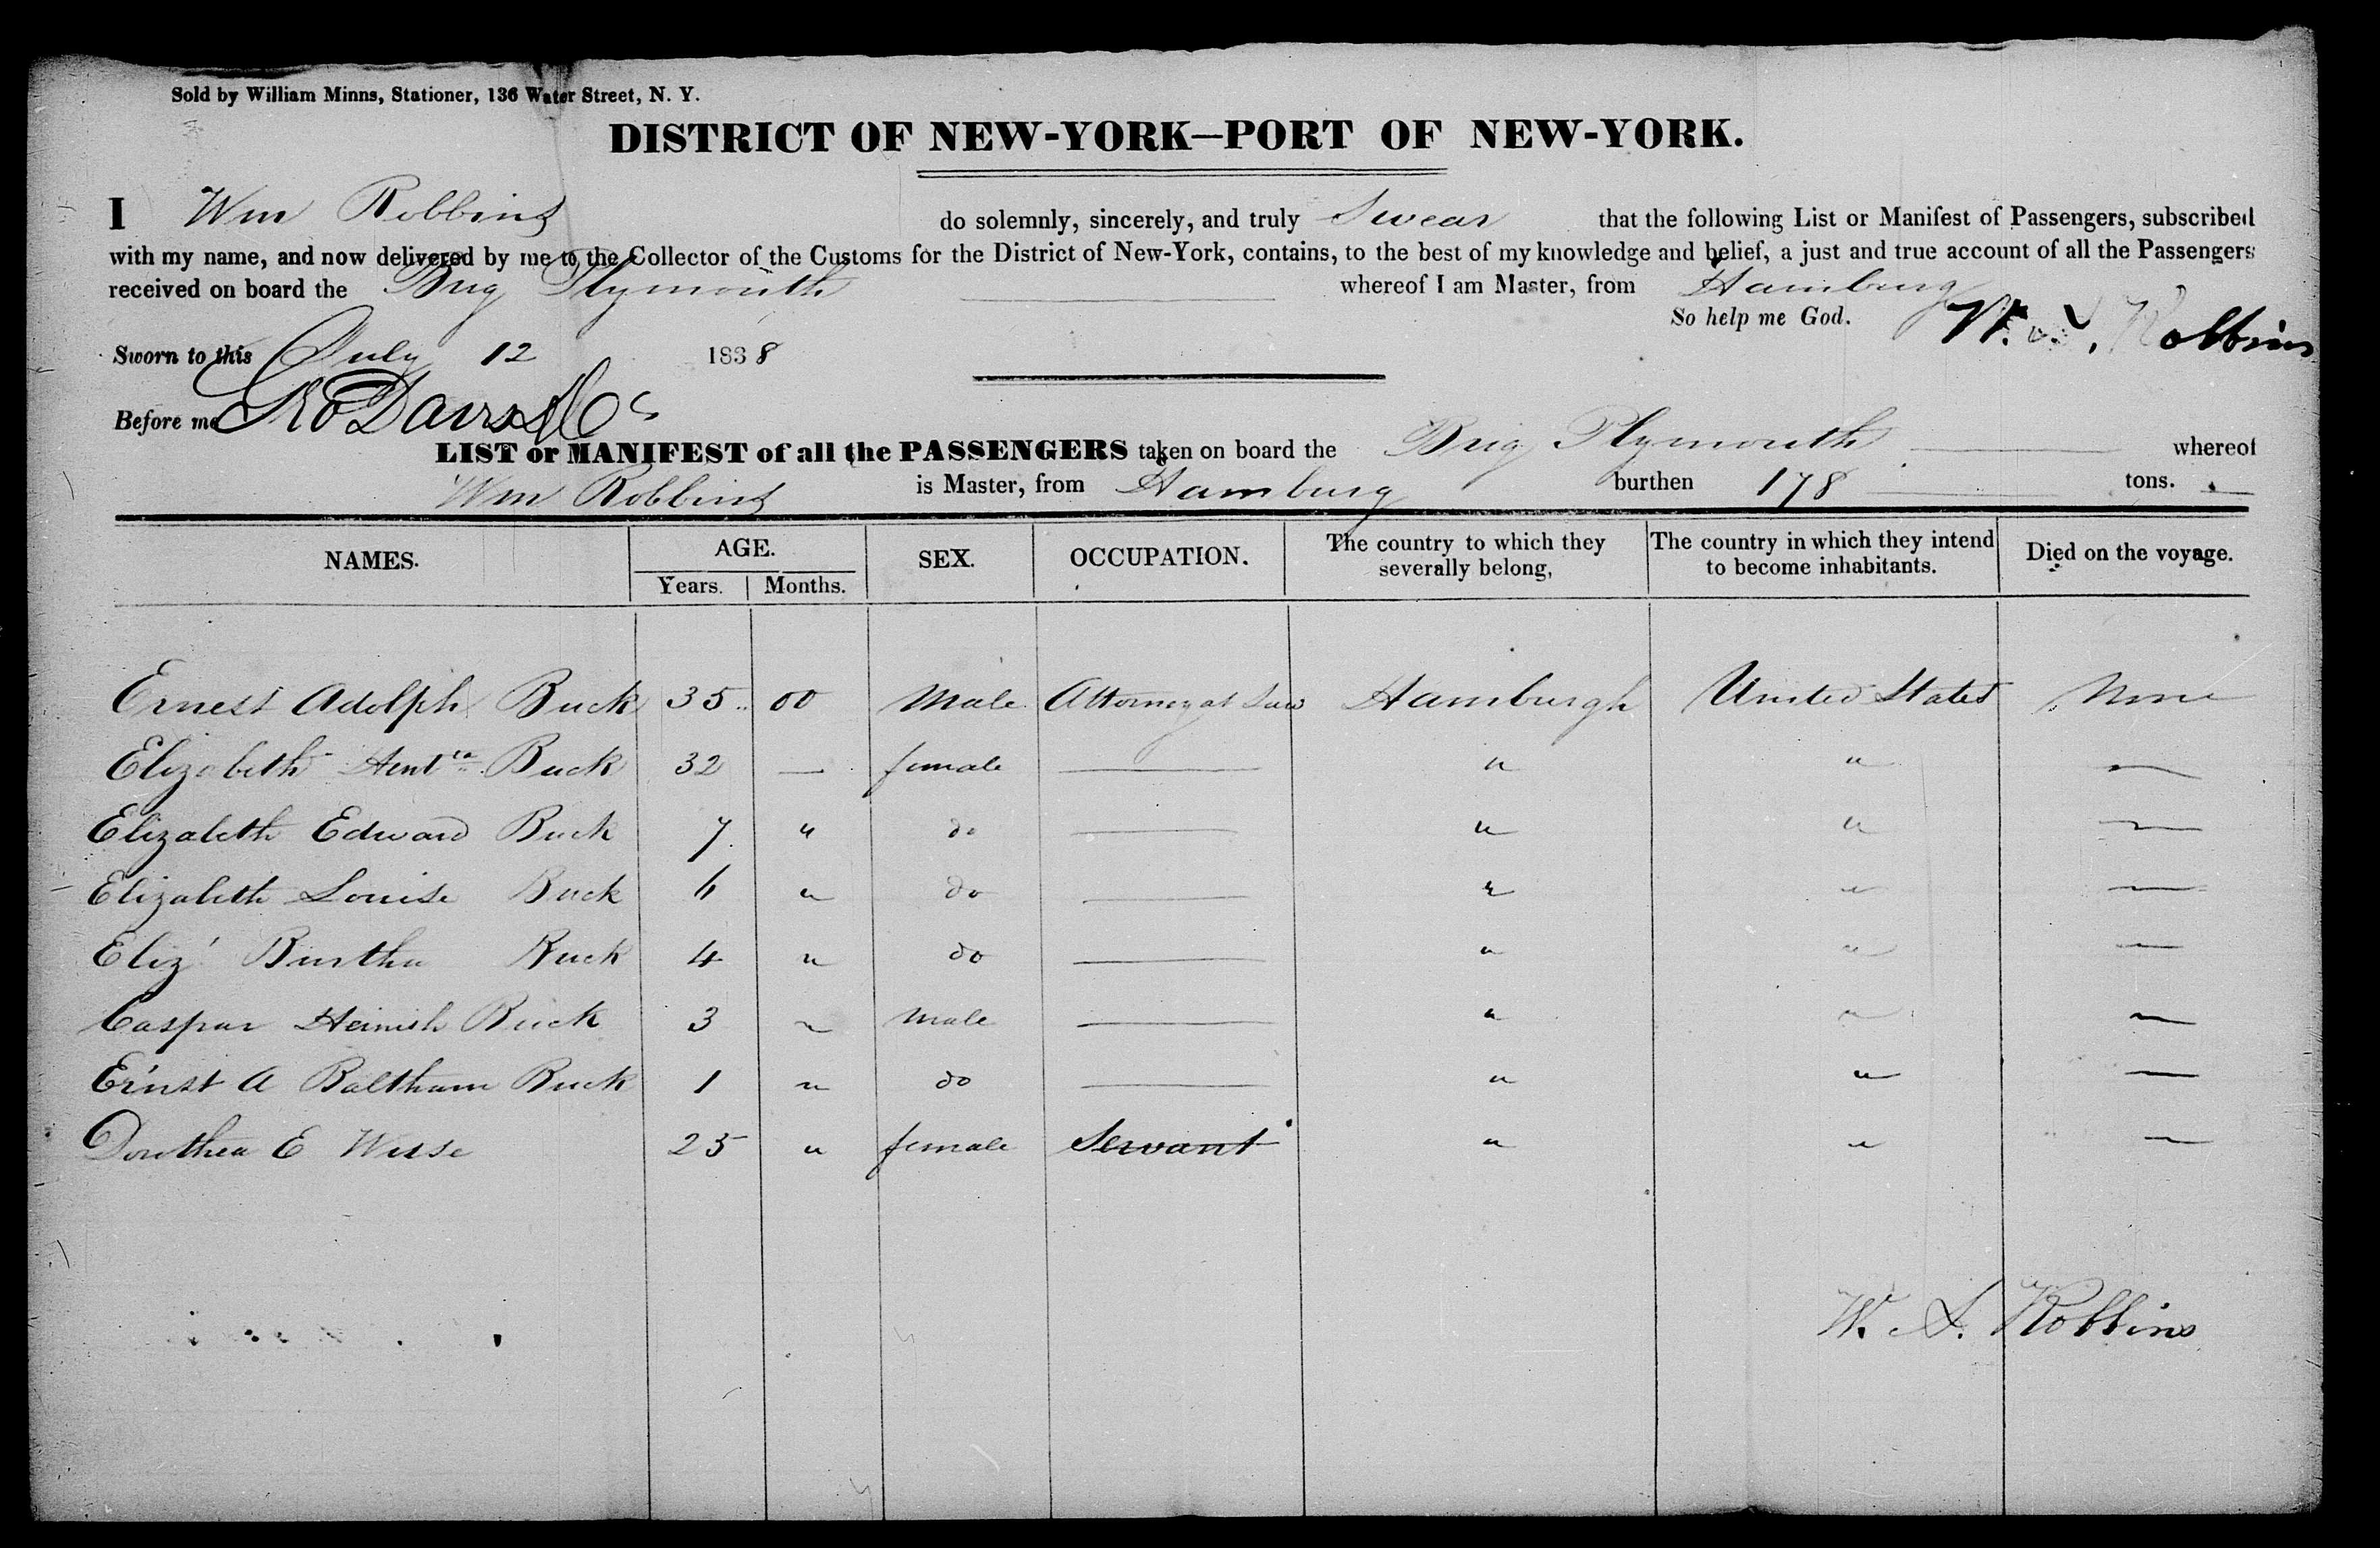 Sold by William Minns, Stationer, 136 Water Street, N. Y.
DISTRICT OF NEW-YORK—PORT OF NEW-YORK.
I Wm Robbins do solemnly, sincerely, and truly Swear that the following List or Manifest of Passengers, subscribed
with my name, and now delivered by me to the Collector of the Customs for the District of New-York, contains, to the best of my knowledge and belief, a just and true account of all the Passengers
received on board the Brig Plymouth whereof I am Master, from Hamburg
So help me God. W. S. Robbins
Sworn to this July 12 1838
Before me Geo Davis
LIST or MANIFEST of all the PASSENGERS taken on board the Brig Plymouth whereof
Wm Robbins is Master, from Hamburg burthen 178 tons.
NAMES. AGE. SEX. OCCUPATION. The country to which they severally belong, The country in which they intend to become inhabitants. Died on the voyage.
Years. Months.
Ernest Adolph Buck 35 00 Male Attorney at Law Hamburgh United States None
Elizabeth Buck 32 — female — " " —
Elizabeth Edward Buck 7 " do — " " —
Elizabeth Louise Buck 6 " do — " " —
Eliz' Burtha Buck 4 " do — " " —
Caspar Heinish Buck 3 " Male — " " —
Ernst A Baltham Buck 1 " do — " " —
Dorothea E Wesse 25 " female Servant " " —
W. S. Robbins